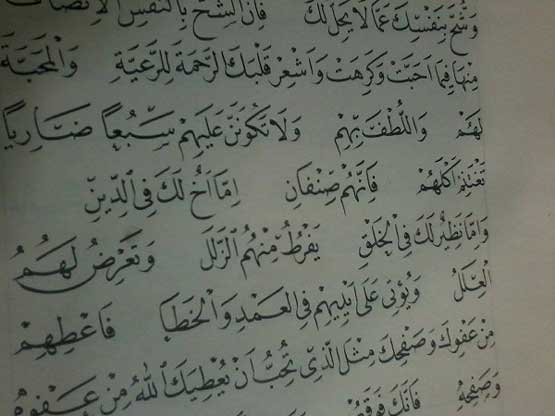 وَشُحَّ بِنَفْسِكَ عَمَّا لَا يَحِلُّ لَكَ فَإِنَّ الشُّحَّ بِالنَّفْسِ الْإِنْصَافُ
مِنْهَا فِيمَا أَحَبَّتْ وَكَرِهَتْ وَأَشْعِرْ قَلْبَكَ الرَّحْمَةَ لِلرَّعِيَّةِ وَالْمَحَبَّةَ
لَهُمْ وَاللُّطْفَ بِهِمْ وَلَا تَكُونَنَّ عَلَيْهِمْ سَبُعًا ضَارِيًا
تَغْتَنِمُ أَكْلَهُمْ فَإِنَّهُمْ صِنْفَانِ إِمَّا أَخٌ لَكَ فِي الدِّينِ
وَإِمَّا نَظِيرٌ لَكَ فِي الْخَلْقِ يَفْرُطُ مِنْهُمُ الزَّلَلُ وَتَعْرِضُ لَهُمُ
الْعِلَلُ وَيُؤْتَى عَلَى أَيْدِيهِمْ فِي الْعَمْدِ وَالْخَطَإِ فَأَعْطِهِمْ
مِنْ عَفْوِكَ وَصَفْحِكَ مِثْلَ الَّذِي تُحِبُّ أَنْ يُعْطِيَكَ اللَّهُ مِنْ عَفْوِهِ
وَصَفْحِهِ فَإِنَّكَ فَوْقَهُمْ